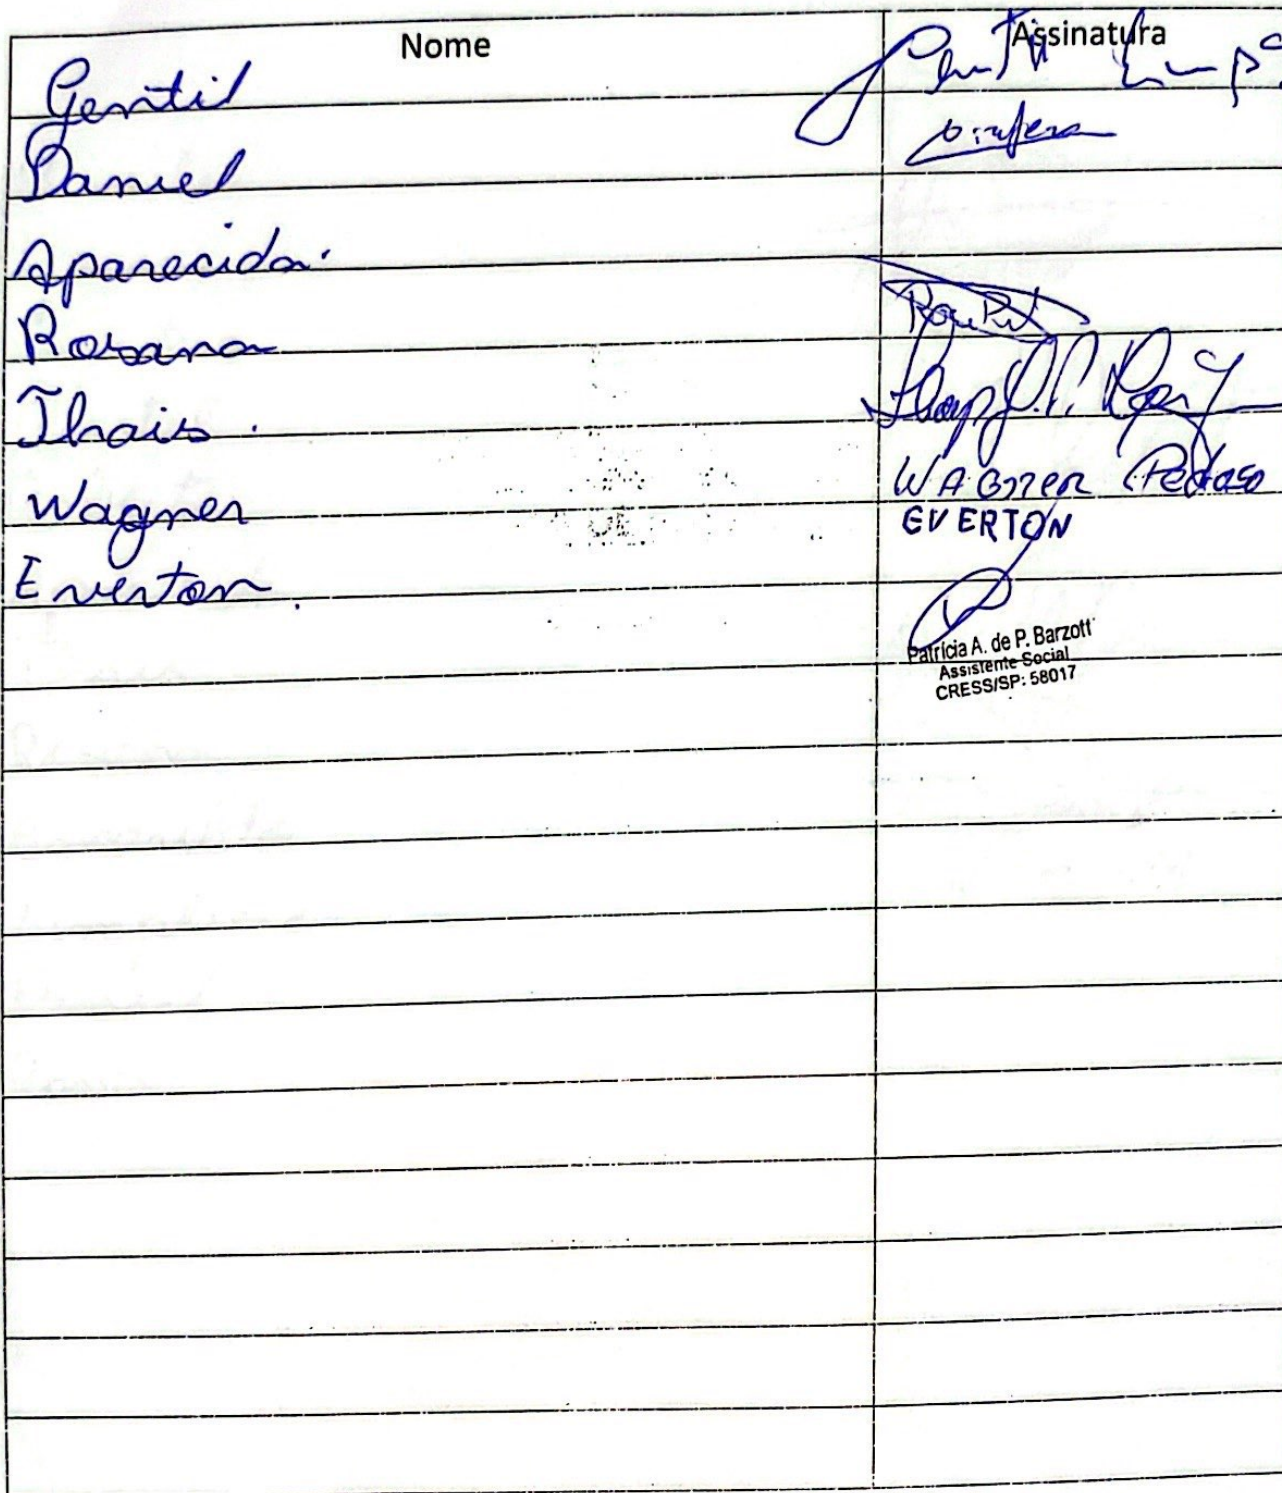 Nome Assinatura
Gentil
Daniel
Aparecida.
Rosana
Thais.
Wagner WAGNER Pedroso
Everton. EVERTON
Patrícia A. de P. Barzott
Assistente Social
CRESS/SP: 58017